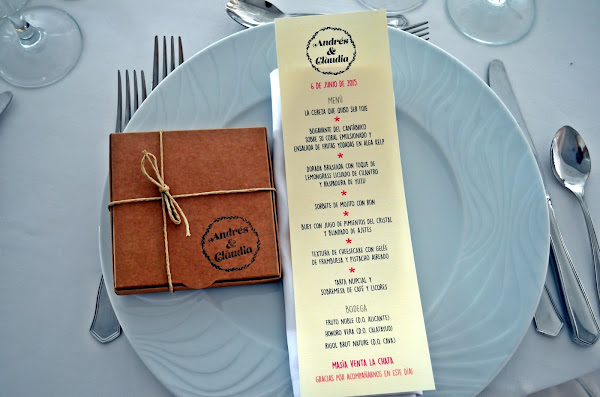 Andrés
&
Claudia
6 DE JUNIO DE 2015
MENÚ
LA CEREZA QUE QUISO SER FOIE
*
BOGAVANTE DEL CANTÁBRICO
SOBRE SU CORAL EMULSIONADO Y
ENSALADA DE FRUTAS YODADAS EN ALGA KELP
*
DORADA BRASEADA CON TOQUE DE
LEMONGRASS LICUADO DE CILANTRO
Y RASPADURA DE YUZU
*
SORBETE DE MOJITO CON RON
*
BUEY CON JUGO DE PIMIENTOS DEL CRISTAL
Y BLINDADO DE AJETES
*
TEXTURA DE CHEESECAKE CON GELÉE
DE FRAMBUESA Y PISTACHO AIREADO
*
TARTA NUPCIAL Y
SOBREMESA DE CAFÉ Y LICORES
BODEGA
FRUTO NOBLE (D.O. ALICANTE)
HONORO VERA (D.O. CALATAYUD)
RIGOL BRUT NATURE (D.O. CAVA)
MASÍA VENTA LA CHATA
GRACIAS POR ACOMPAÑARNOS EN ESTE DÍA!
Andrés
&
Claudia